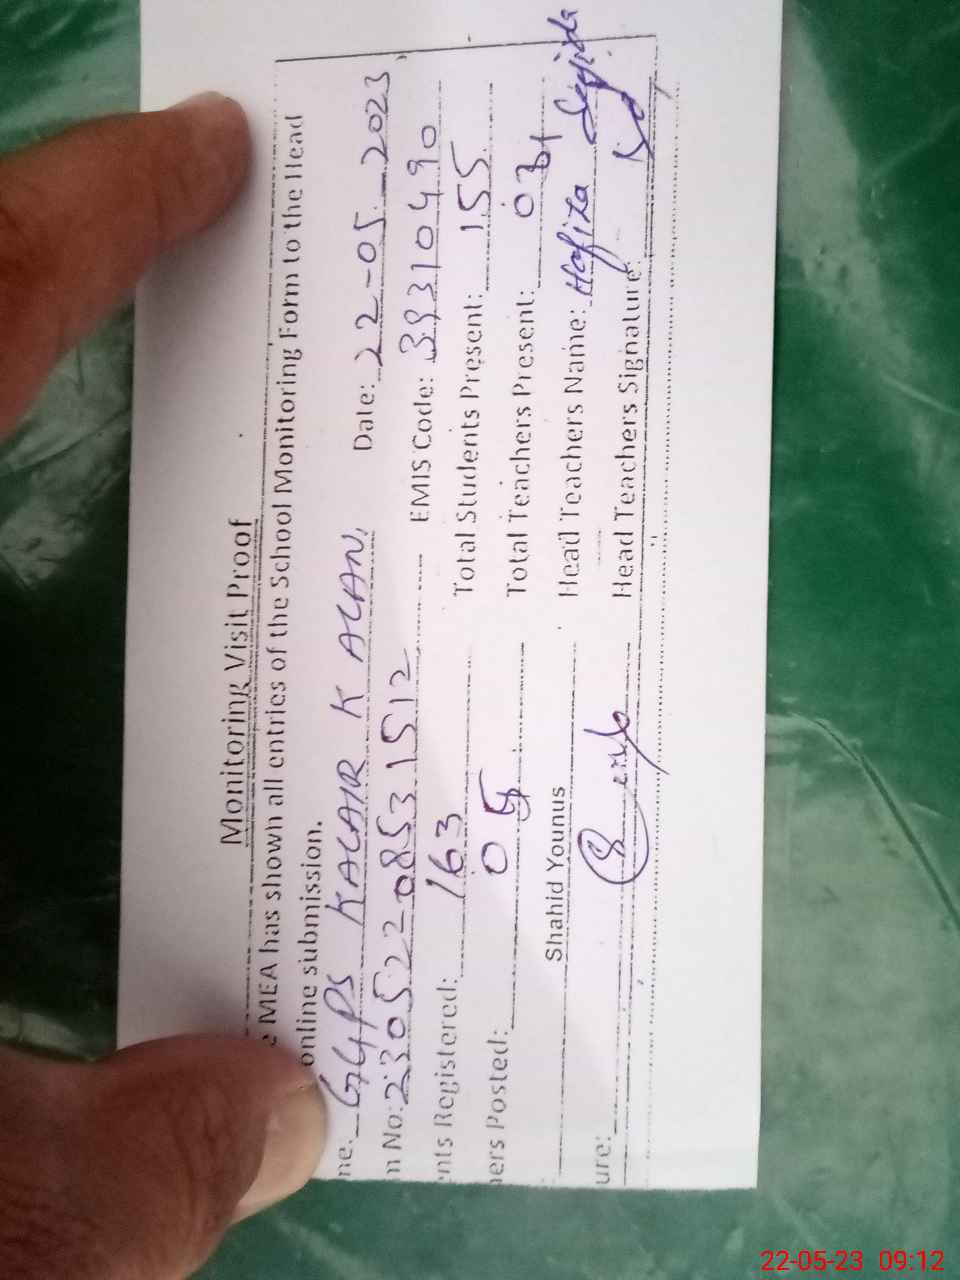 Monitoring Visit Proof
MEA has shown all entries of the School Monitoring Form to the Head
online submission.
ne. GGPS KALAIR K ALAN, Date: 22-05-2023
n No: 23052208531512 EMIS Code: 39310490
nts Registered: 163 Total Students Present: 155
ers Posted: 05 Total Teachers Present: 03+
Shahid Younus Head Teachers Name: Hafiza Sajida
ure: Head Teachers Signature:
22-05-23 09:12